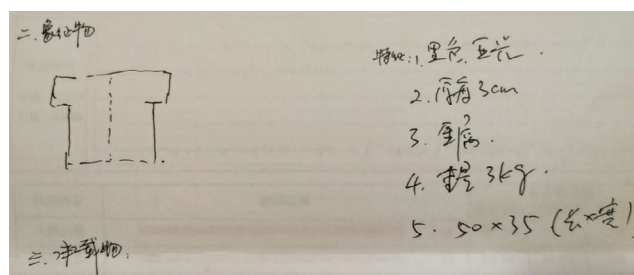 二.象征物
特征:1.黑色.亚光.
2.厚度3cm
3.金属.
4.重量3kg.
5.50×35(长×宽)
三.承载物.